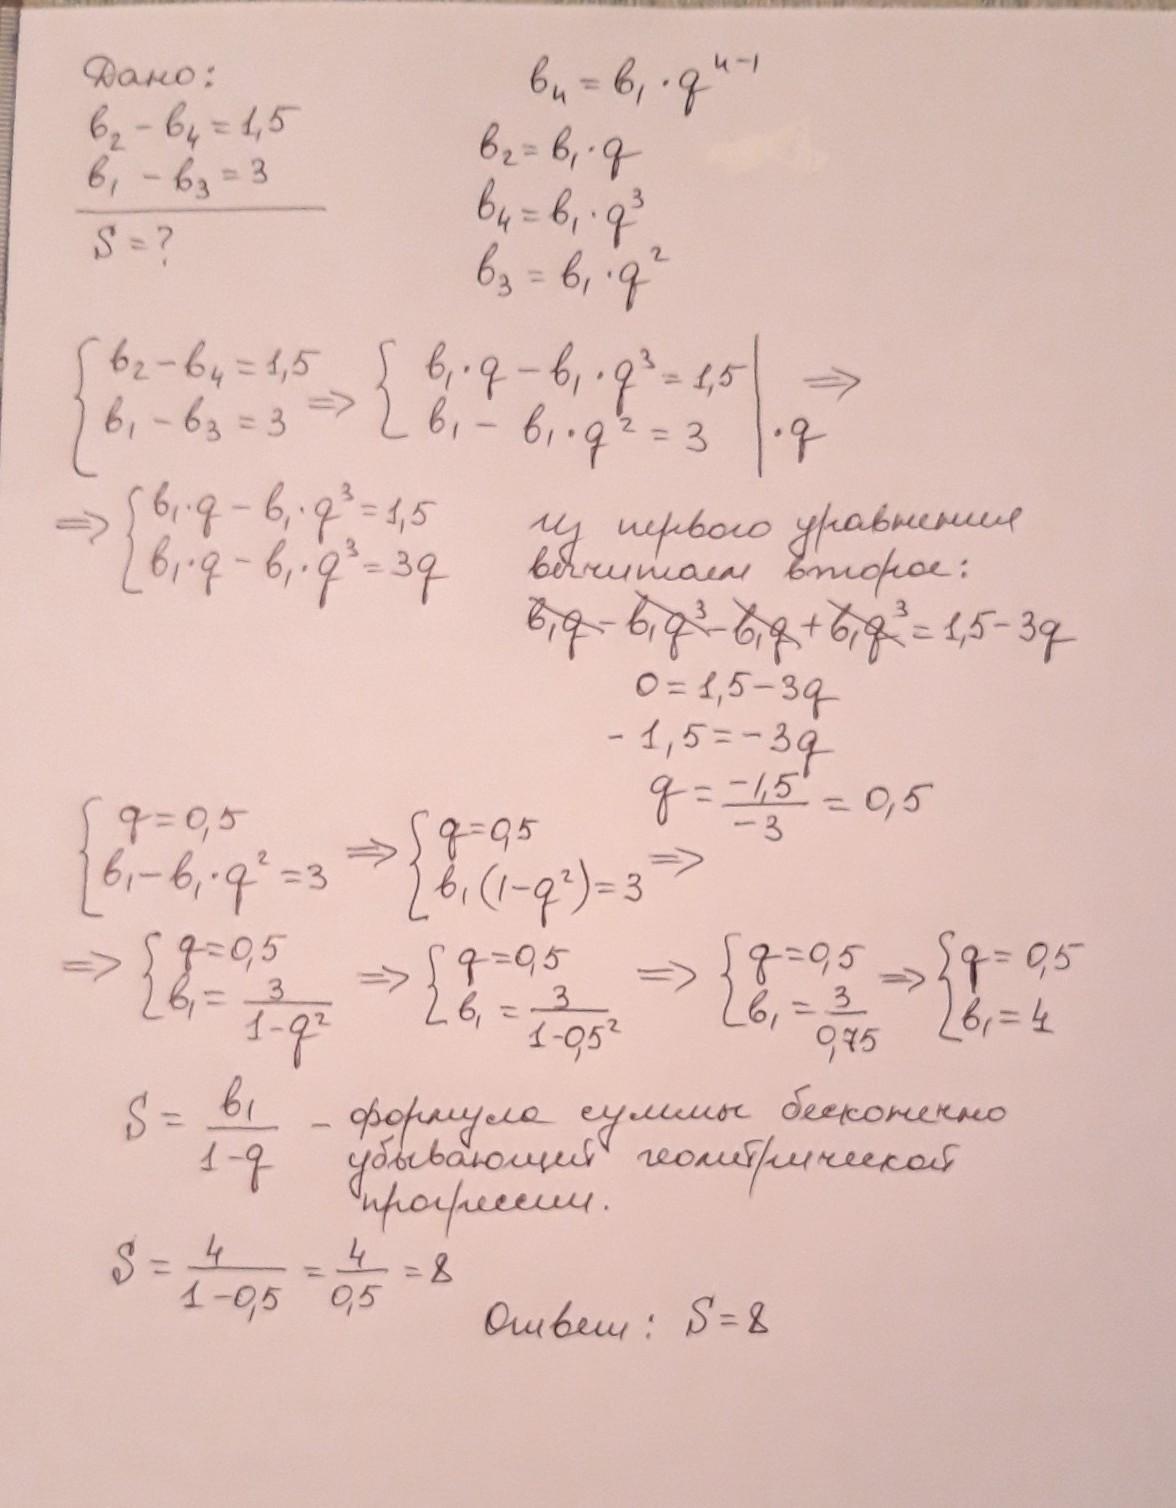 Дано:
b₂ - b₄ = 1,5
b₁ - b₃ = 3
S = ?
bₙ = b₁ · qⁿ⁻¹
b₂ = b₁ · q
b₄ = b₁ · q³
b₃ = b₁ · q²
{ b₂ - b₄ = 1,5 ⇒ { b₁ · q - b₁ · q³ = 1,5 | ⇒
{ b₁ - b₃ = 3 ⇒ { b₁ - b₁ · q² = 3 | · q
⇒ { b₁ · q - b₁ · q³ = 1,5
{ b₁ · q - b₁ · q³ = 3q
из первого уравнения
вычитаем второе:
b₁q - b₁q³ - b₁q + b₁q³ = 1,5 - 3q
0 = 1,5 - 3q
-1,5 = -3q
q = -1,5 / -3 = 0,5
{ q = 0,5 ⇒ { q = 0,5 ⇒
{ b₁ - b₁ · q² = 3 { b₁ (1 - q²) = 3
⇒ { q = 0,5 ⇒ { q = 0,5 ⇒ { q = 0,5 ⇒ { q = 0,5
{ b₁ = 3 / 1 - q² { b₁ = 3 / 1 - 0,5² { b₁ = 3 / 0,75 { b₁ = 4
S = b₁ / 1 - q - формула суммы бесконечно
убывающей геометрической
прогрессии.
S = 4 / 1 - 0,5 = 4 / 0,5 = 8
Ответ: S = 8